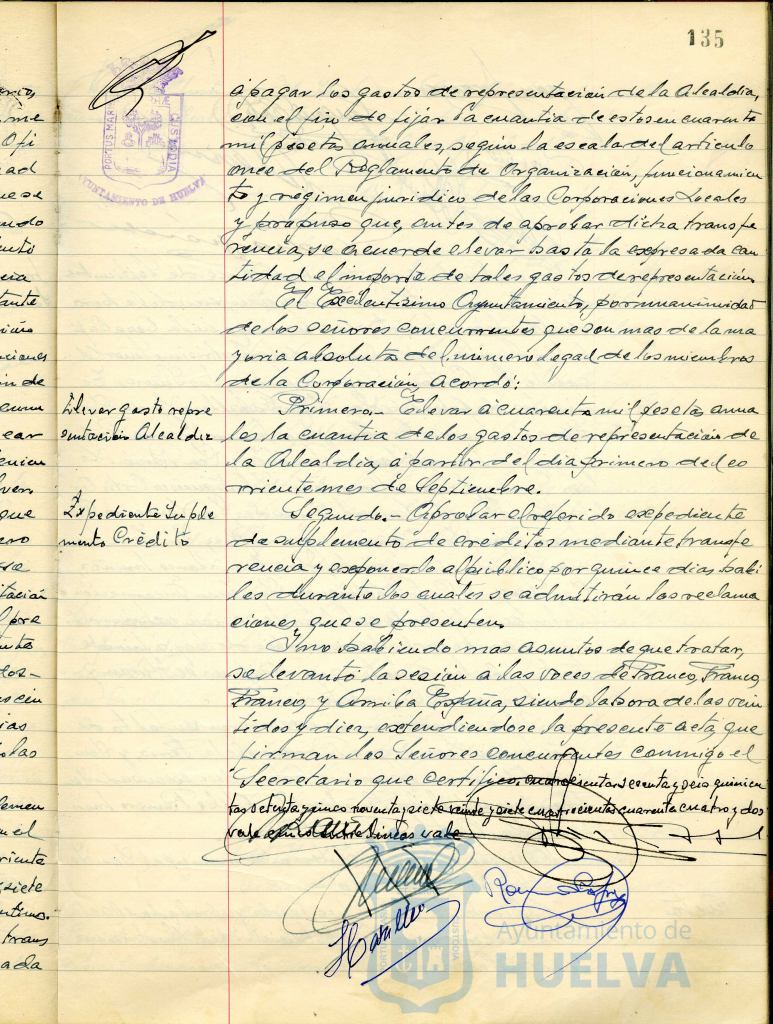 135
PORTUS MARIS
CUSTODIA
AYUNTAMIENTO DE HUELVA
á pagar los gastos de representación de la Alcaldia,
con el fin de fijar la cuantia de estos en cuarenta
mil pesetas anuales, según la escala del articulo
once del Reglamento de Organización, funcionamien
to y régimen juridico de las Corporaciones Locales
y propuso que, antes de aprobar dicha transfe
rencia, se acuerde elevar hasta la expresada can
tidad el importe de tales gastos de representación.
El Excelentisimo Ayuntamiento, por unanimidad
de los señores concurrentes que son mas de la ma
yoria absoluta del número legal de los miembros
de la Corporación, acordó:
Elevar gasto repre
sentación Alcaldia
Primero.- Elevar á cuarenta mil pesetas anua
les la cuantia de los gastos de representación de
la Alcaldia, á partir del dia primero del co
rriente mes de Septiembre.
Expediente Suple
mento Crédito
Segundo.- Aprobar el referido expediente
de suplemento de créditos mediante transfe
rencia y exponerlo al público por quince dias habi
les durante los cuales se admitirán las reclama
ciones que se presenten.
Y no habiendo mas asuntos de que tratar,
se levantó la sesión á las voces de Franco, Franco,
Franco, y Arriba España, siendo la hora de las vein
tidos y diez, extendiendose la presente acta que
firman los Señores concurrentes conmigo el
Secretario que certifico. cuarenta y seis quinien
tas setenta y cinco noventa y siete veinte y siete cuatrocientos cuarenta cuatro y dos
vale entre lineas vale
Ayuntamiento de
HUELVA